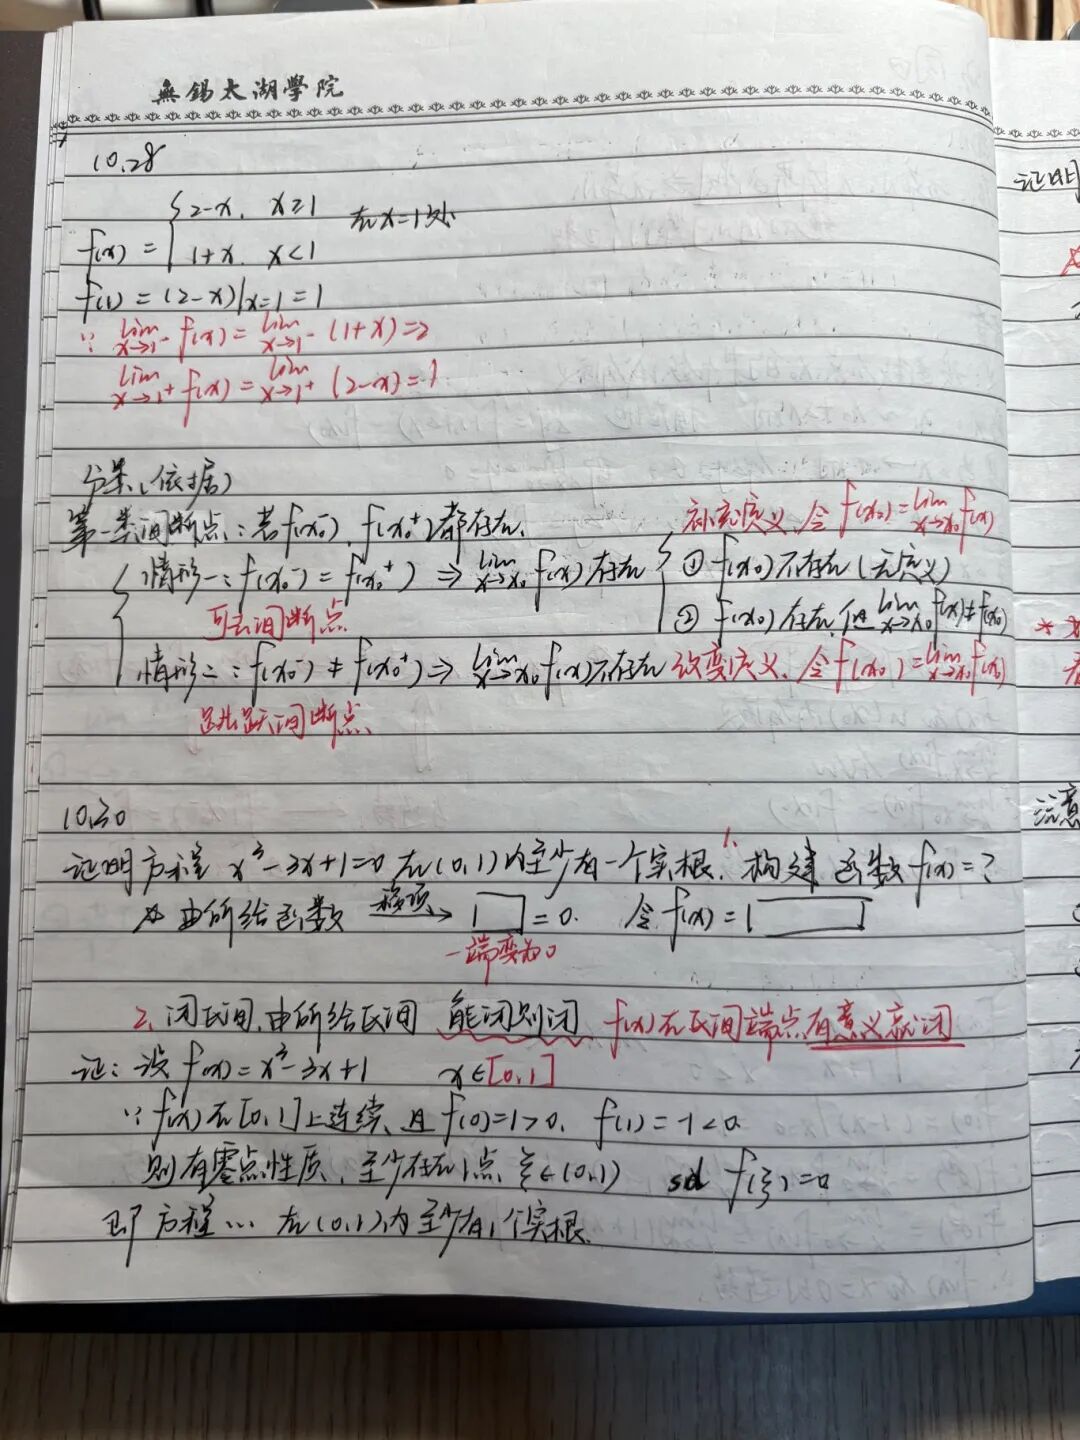 無錫太湖學院
10.28
f(x) = { 2-x, x≥1
1+x, x<1 在x=1处
f(1) = (2-x)|x=1 = 1
∵ lim x→1⁻ f(x) = lim x→1⁻ (1+x) = 2
lim x→1⁺ f(x) = lim x→1⁺ (2-x) = 1
分类(依据)
第一类间断点:若f(x₀⁻), f(x₀⁺)都存在.
补充定义,令f(x₀)=lim x→x₀ f(x)
情形一:f(x₀⁻) = f(x₀⁺) ⇒ lim x→x₀ f(x)存在 { ① f(x₀)不存在(无定义)
可去间断点 ② f(x₀)存在,但lim x→x₀ f(x)≠f(x₀)
情形二:f(x₀⁻) ≠ f(x₀⁺) ⇒ lim x→x₀ f(x)不存在 改变定义,令f(x₀)=lim x→x₀ f(x)
跳跃间断点
10.30
证明方程 x³-3x+1=0 在(0,1)内至少有一个实根. 1. 构建函数f(x)=?
由所给函数 移项→ □ = 0. 令f(x) = □
一端变为0
2. 闭区间,由所给区间 能闭则闭 f(x)在区间端点有意义就闭
证:设 f(x) = x³-3x+1 x∈[0,1]
∵ f(x)在[0,1]上连续,且f(0)=1>0, f(1)=-1<0
则有零点性质,至少存在1点 ξ∈(0,1) f(ξ)=0
即方程… 在(0,1)内至少有1个实根.
证明
注意